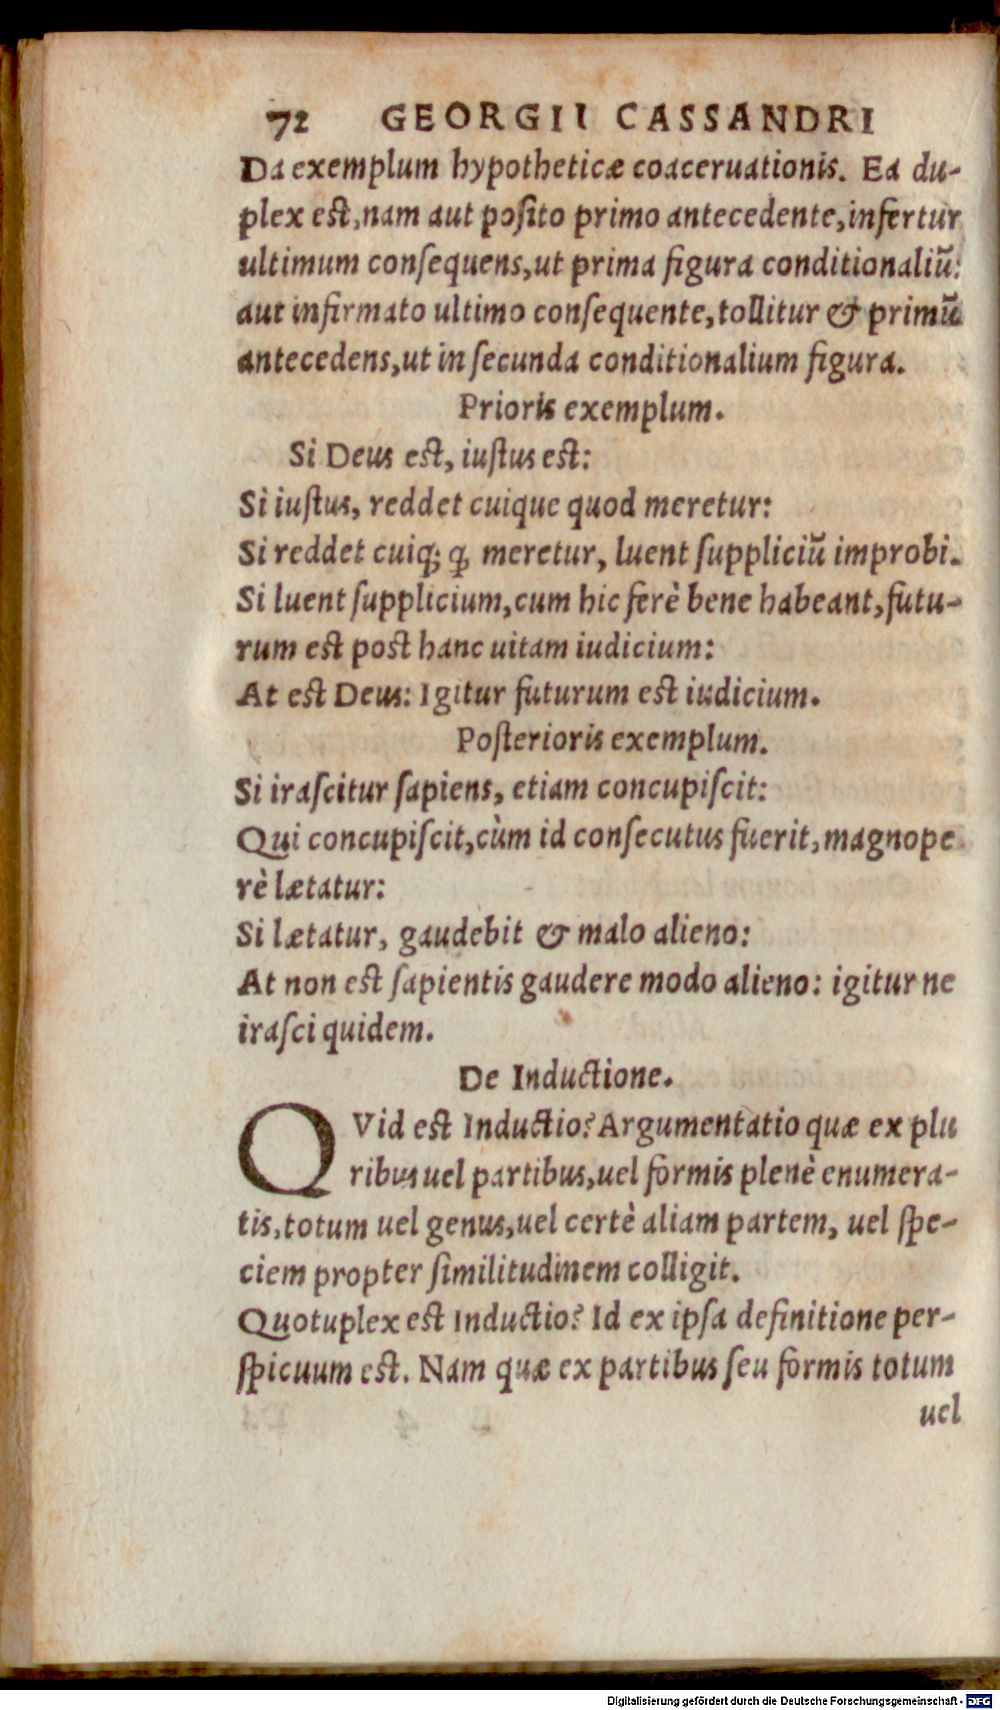 72 GEORGII CASSANDRI
Da exemplum hypotheticæ coaceruationis. Ea du-
plex est, nam aut posito primo antecedente, infertur
ultimum consequens, ut prima figura conditionaliũ:
aut infirmato ultimo consequente, tollitur & primũ
antecedens, ut in secunda conditionalium figura.
Prioris exemplum.
Si Deus est, iustus est:
Si iustus, reddet cuique quod meretur:
Si reddet cuiq; ꝙ meretur, luent suppliciũ improbi.
Si luent supplicium, cum hic ferè bene habeant, futu-
rum est post hanc uitam iudicium:
At est Deus: Igitur futurum est iudicium.
Posterioris exemplum.
Si irascitur sapiens, etiam concupiscit:
Qui concupiscit, cùm id consecutus fuerit, magnope
rè lætatur:
Si lætatur, gaudebit & malo alieno:
At non est sapientis gaudere modo alieno: igitur ne
irasci quidem.
De Inductione.
QVid est Inductio? Argumentatio quæ ex plu
ribus uel partibus, uel formis plenè enumera-
tis, totum uel genus, uel certè aliam partem, uel spe-
ciem propter similitudinem colligit.
Quotuplex est Inductio? Id ex ipsa definitione per-
spicuum est. Nam quæ ex partibus seu formis totum
uel
Digitalisierung gefördert durch die Deutsche Forschungsgemeinschaft - DFG